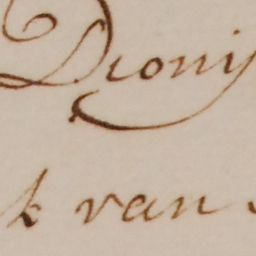 Diony
k van